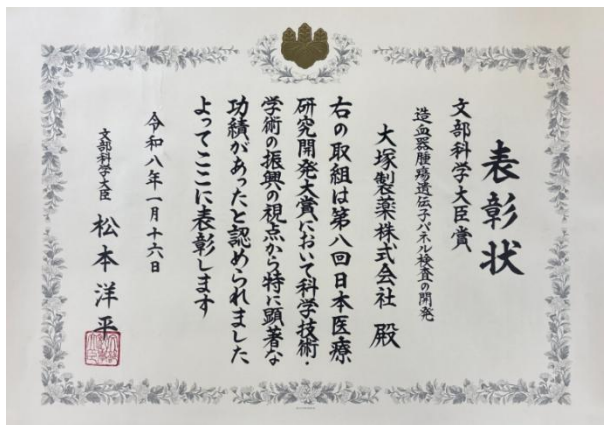 表彰状
文部科学大臣賞
造血器腫瘍遺伝子パネル検査の開発
大塚製薬株式会社 殿
右の取組は第八回日本医療
研究開発大賞において科学技術・
学術の振興の視点から特に顕著な
功績があったと認められました
よってここに表彰します
令和八年一月十六日
文部科学大臣 松本洋平